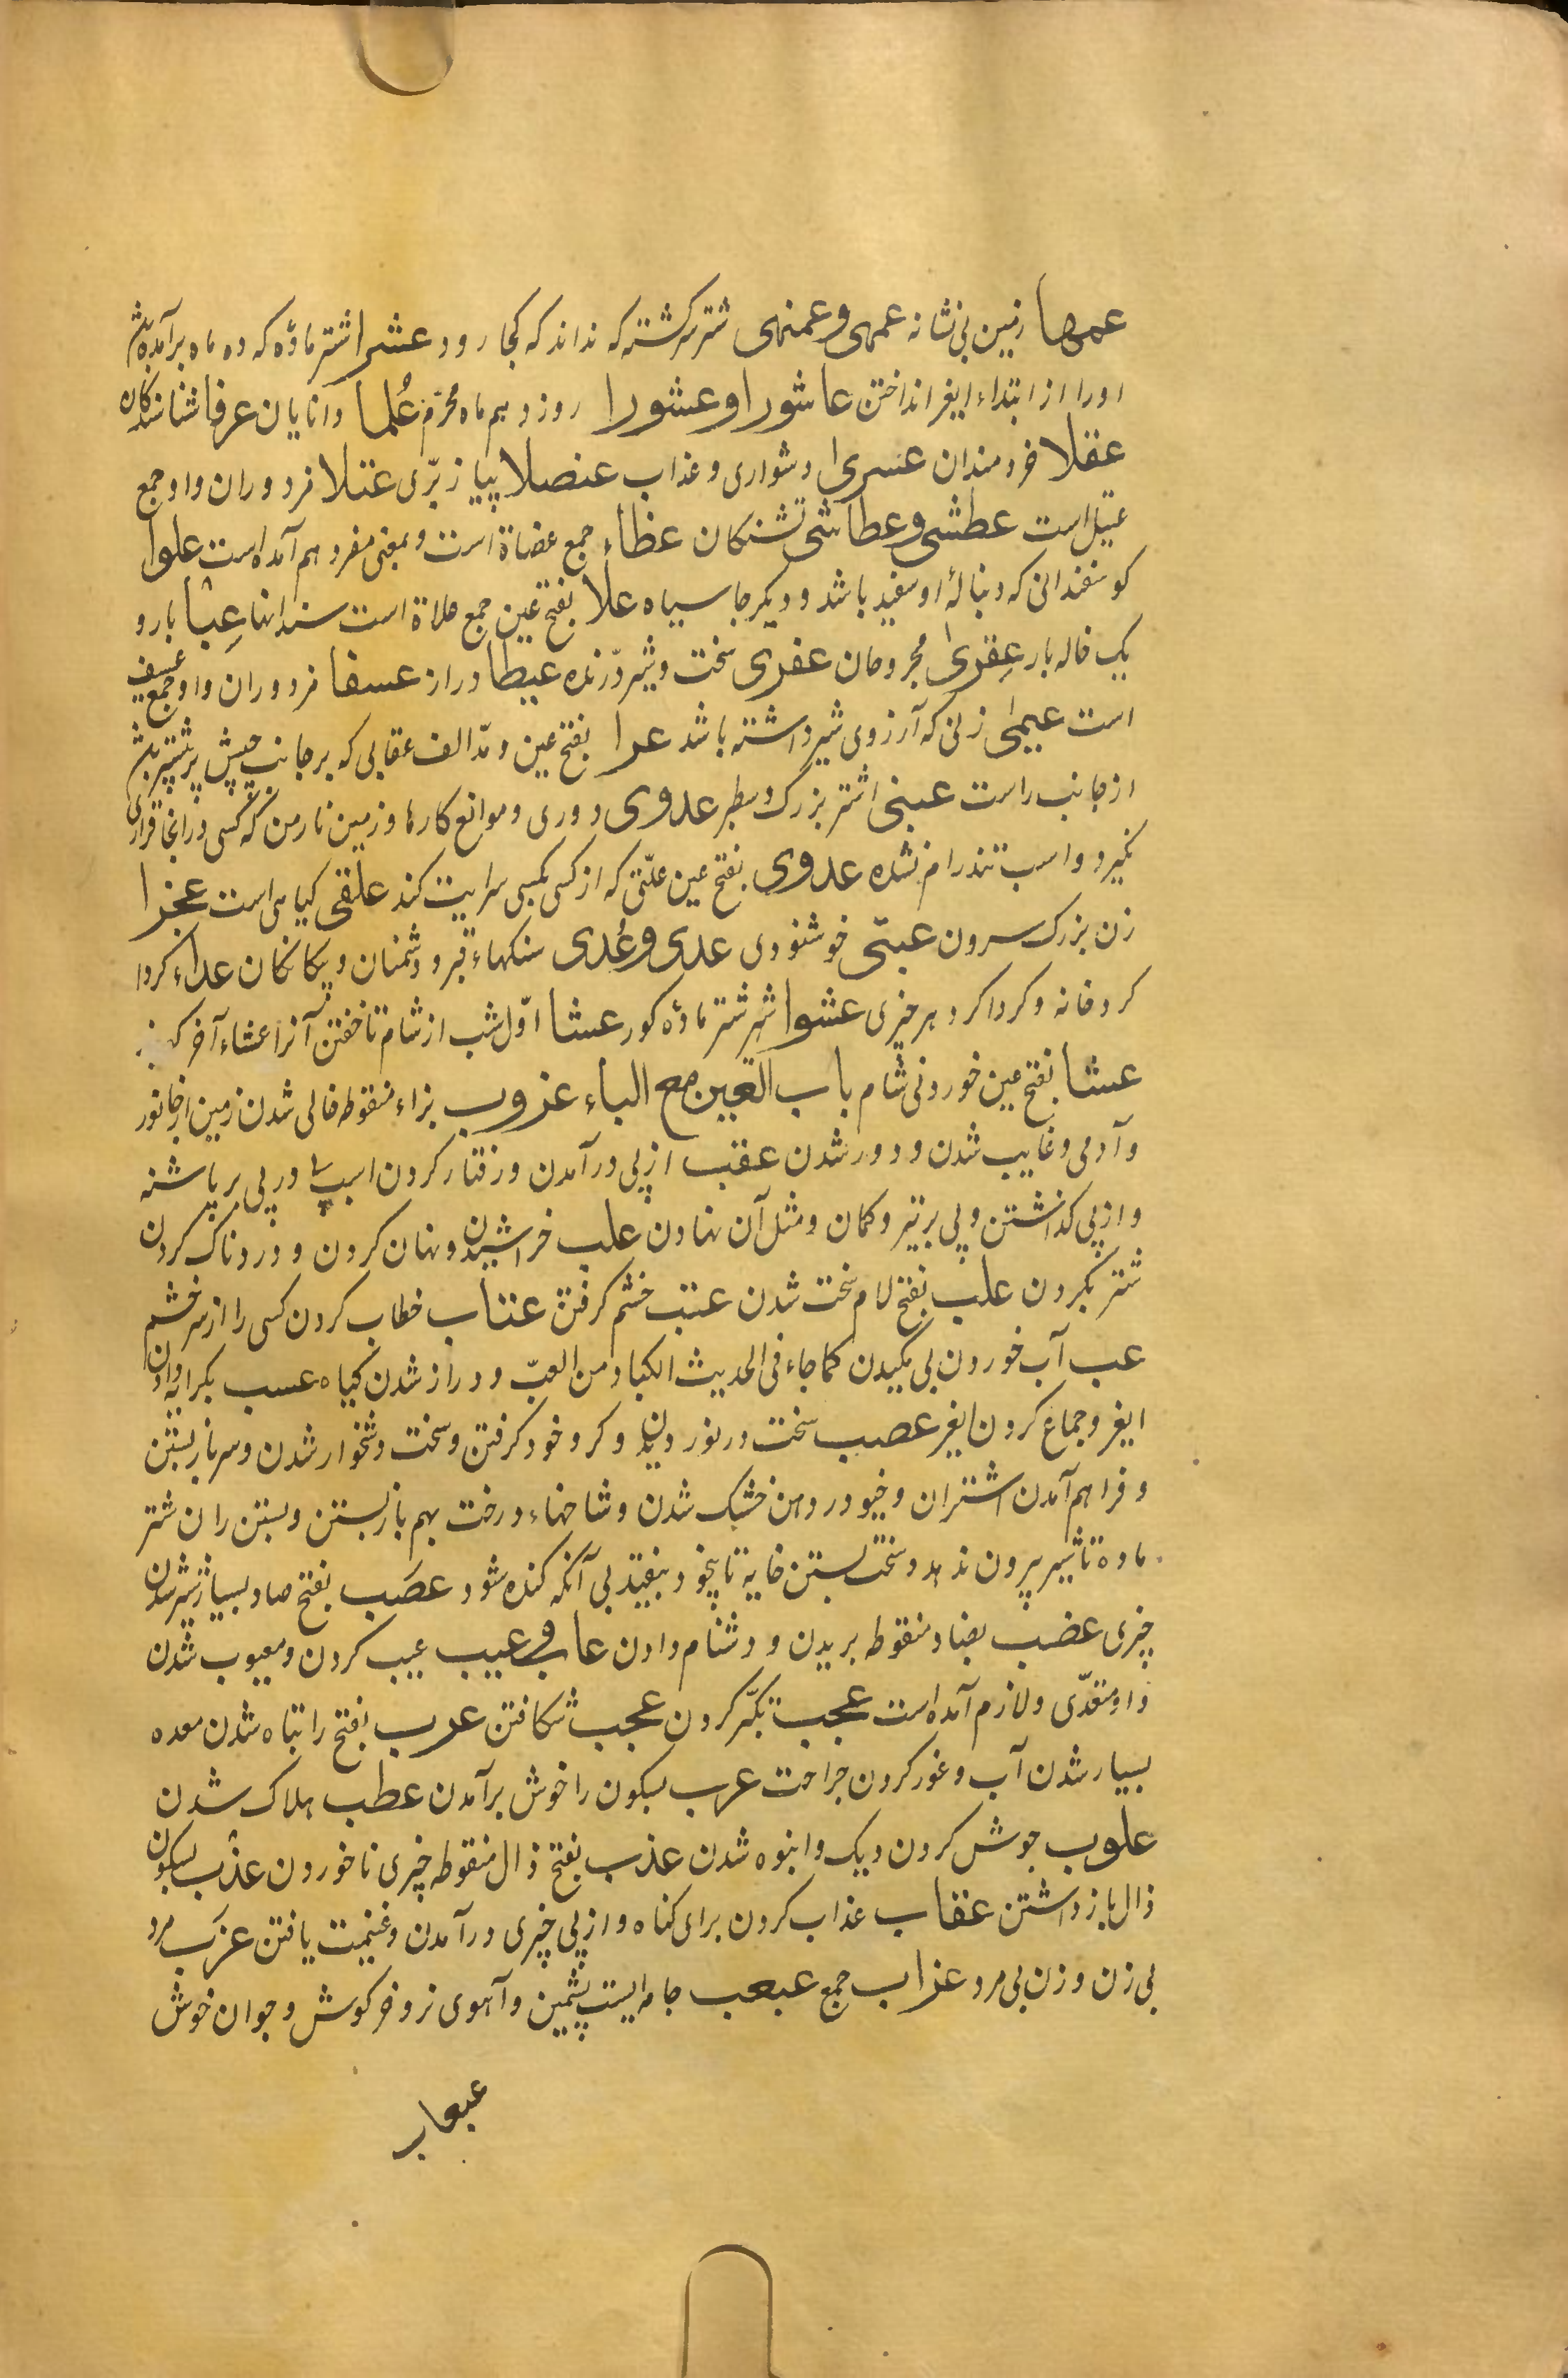 عمها زمین بی نشانه عمهی و عمنهی شتر سرکشته که نداند که کجا رود عشرا شتر ماده که ده ماه برآمده باشد
اورا از ابتداء ایغر انداختن عاشورا و عشورا روز دهم ماه محرّم عُلما دانایان عرفا شناسندکان
عقلا خردمندان عسری دشواری و عذاب عنصلا پیاز برّی عتلا مزدوران و او جمع
عتیل است عطشی و عطاشی تشنکان عظاء جمع عضاة است و بمعنی مفرد هم آمده است علوا
کوسفندانی که دنبالهٔ او سفید باشد و دیکر جا سیاه علا بفتح عین جمع علاة است سندانها عِبا بار و
یک خاله بار عِقریٰ مجروحان عفری سخت و شیر درّنده عیطا دراز عسفا مزدوران و او جمع عسیف
است عیمیٰ زنی که آرزوی شیر داشته باشد عرا بفتح عین و مدّ الف عقابی که بر جانب چپش پر بیشتر باشد
از جانب راست عبنی اشتر بزرک و سطبر عدوی دوری و موانع کارها و زمین نارمن که کسی در آنجا قراری
نکیرد و اسب تند رام نشده عدوی بفتح عین علّتی که از کسی بکسی سرایت کند علقی کیاهی است عجزا
زن بزرک سرون عبتّی خوشنودی عدی و عُدی سنکهاء قبر و دشمنان و بیکانکان عداء کردا
کرد خانه و کرداکرد هر چیزی عشوا شتر ماده کور عشا اوّل شب از شام تا خفتن آنرا عشاء آخر کویند
عشا بفتح عین خوردنی شام باب العین مع الباء عزوب بزاء منقوطه خالی شدن زمین از جانور
و آدمی و غایب شدن و دور شدن عقب از پی در آمدن و رفتار کردن اسپ و پی بر پاشنه
و از پی کذاشتن و پی بر تیر و کمان و مثل آن نهادن علب خراشیدن و نهان کردن و دردناک کردن
شتر بکردن علب بفتح لام سخت شدن عتب خشم کرفتن عتاب خطاب کردن کسی را از سر خشم
عب آب خوردن بی مکیدن کما جاء فی الحدیث الکباد من العبّ و دراز شدن کیاه عسب بکرایه دادن
ایغر و جماع کردن ایغر عصب سخت در نوردیدن و کرد خود کرفتن و سخت و شخوار شدن و سر باز بستن
و فراهم آمدن اشتران و خیو در دهن خشک شدن و شاخهاء درخت بهم باز بستن و بستن ران شتر
ماده تا شیر بیرون ندهد و سخت بستن خایه تا بیخود بیفتد بی آنکه کنده شود عصَب بفتح صاد بسیار شدن
چیزی عضب بضاد منقوطه بریدن و دشنام دادن عاب و عیب عیب کردن و معیوب شدن
و او متعدّی و لازم آمده است عجب تکبّر کردن عجب شکافتن عرب بفتح را تباه شدن معده
بسیار شدن آب و غور کردن جراحت عرب بسکون را خوش برآمدن عطب هلاک شدن
علوب جوش کردن دیک و انبوه شدن عذب بفتح ذال منقوطه چیزی ناخوردن عذب بسکون
ذال باز داشتن عقاب عذاب کردن برای کناه و از پی چیزی در آمدن و غنیمت یافتن عزَب مرد
بی زن و زن بی مرد عزاب جمع عبعب جامه‌ایست پشمین و آهوی نر و خرکوش و جوان خوش
عبعاب